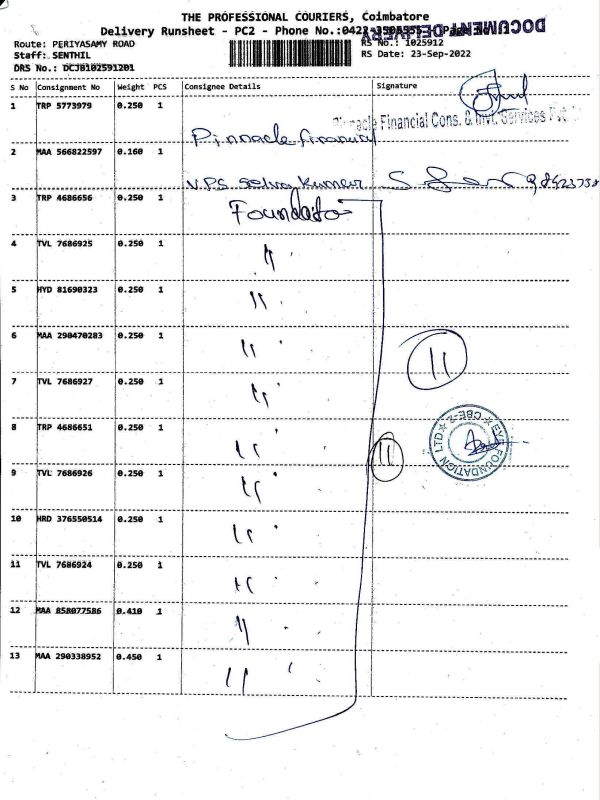 THE PROFESSIONAL COURIERS, Coimbatore
DOCUMENT DELIVERY
Delivery Runsheet - PC2 - Phone No.:0422
Route: PERIYASAMY ROAD
RS No.: 1025912
Staff: SENTHIL
RS Date: 23-Sep-2022
DRS No.: DCJB102591201
S No Consignment No Weight PCS Consignee Details Signature
1 TRP 5773979 0.250 1 Pinnacle financial
Financial Cons. & Invt. Services Pvt
2 MAA 566822597 0.160 1 V.P.S. Selva Kumar
3 TRP 4686656 0.250 1 Foundatio
4 TVL 7686925 0.250 1 "
5 HYD 81690323 0.250 1 "
6 MAA 290470283 0.250 1 "
11
7 TVL 7686927 0.250 1 "
8 TRP 4686651 0.250 1 "
EYE FOUNDATION LTD ★ CBE-2 ★
11
9 TVL 7686926 0.250 1 "
10 HRD 376550514 0.250 1 "
11 TVL 7686924 0.250 1 "
12 MAA 858077586 0.410 1 "
13 MAA 290338952 0.450 1 "